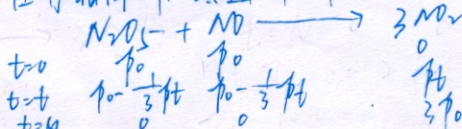 N₂O₅ + NO ⟶ 3NO₂
t=0 p₀ p₀ 0
t=t p₀-⅓pt p₀-⅓pt pt
0 0 3p₀